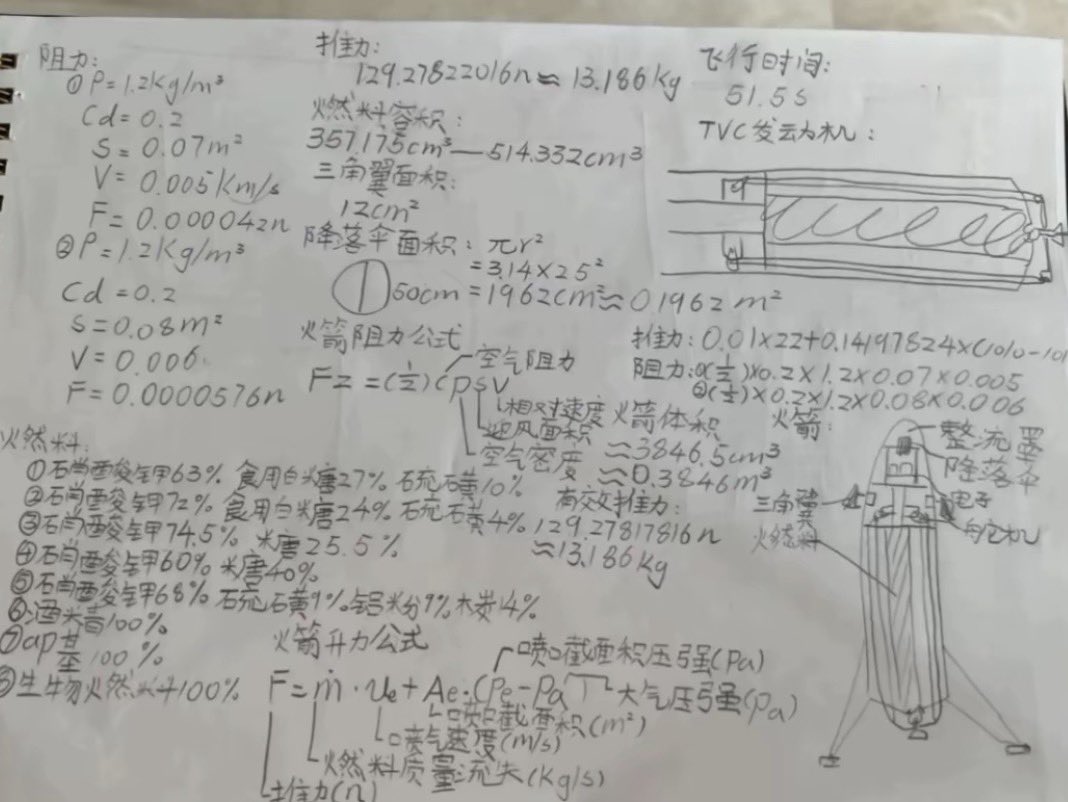 阻力:
①P=1.2Kg/m³
Cd=0.2
S=0.07m²
V=0.005Km/s
F=0.000042n
②P=1.2Kg/m³
Cd=0.2
S=0.08m²
V=0.006
F=0.0000576n
推力:
129.27822016n≈13.186Kg
燃料容积:
357.175cm³—514.332cm³
三角翼面积:
12cm²
降落伞面积:πr²
=3.14×25²
50cm=1962cm²≈0.1962m²
飞行时间:
51.5s
TVC发动机:
火箭阻力公式
F=(½)CPSV
空气阻力
相对速度
迎风面积
空气密度
火箭体积
≈3846.5cm³
≈0.3846m³
推力:0.01×22+0.14197824×(1010-101
阻力:①(½)×0.2×1.2×0.07×0.005
②(½)×0.2×1.2×0.08×0.006
火箭:
整流罩
降落伞
电子
舵机
三角翼
燃料
有效推力:
129.27817816n
≈13.186Kg
燃料:
①硝酸钾63% 食用白米唐27% 硫磺10%
②硝酸钾72% 食用白米唐24% 硫磺4%
③硝酸钾74.5% 米唐25.5%
④硝酸钾60% 米唐40%
⑤硝酸钾68% 硫磺9% 铝粉9% 木炭14%
⑥酒精100%
⑦ap基100%
⑧生物燃料100%
火箭升力公式
F=ṁ·Ue+Ae·(Pe-Pa
喷口截面积压强(Pa)
大气压强(Pa)
喷口截面积(m²)
喷气速度(m/s)
燃料质量流失(Kg/s)
推力(n)